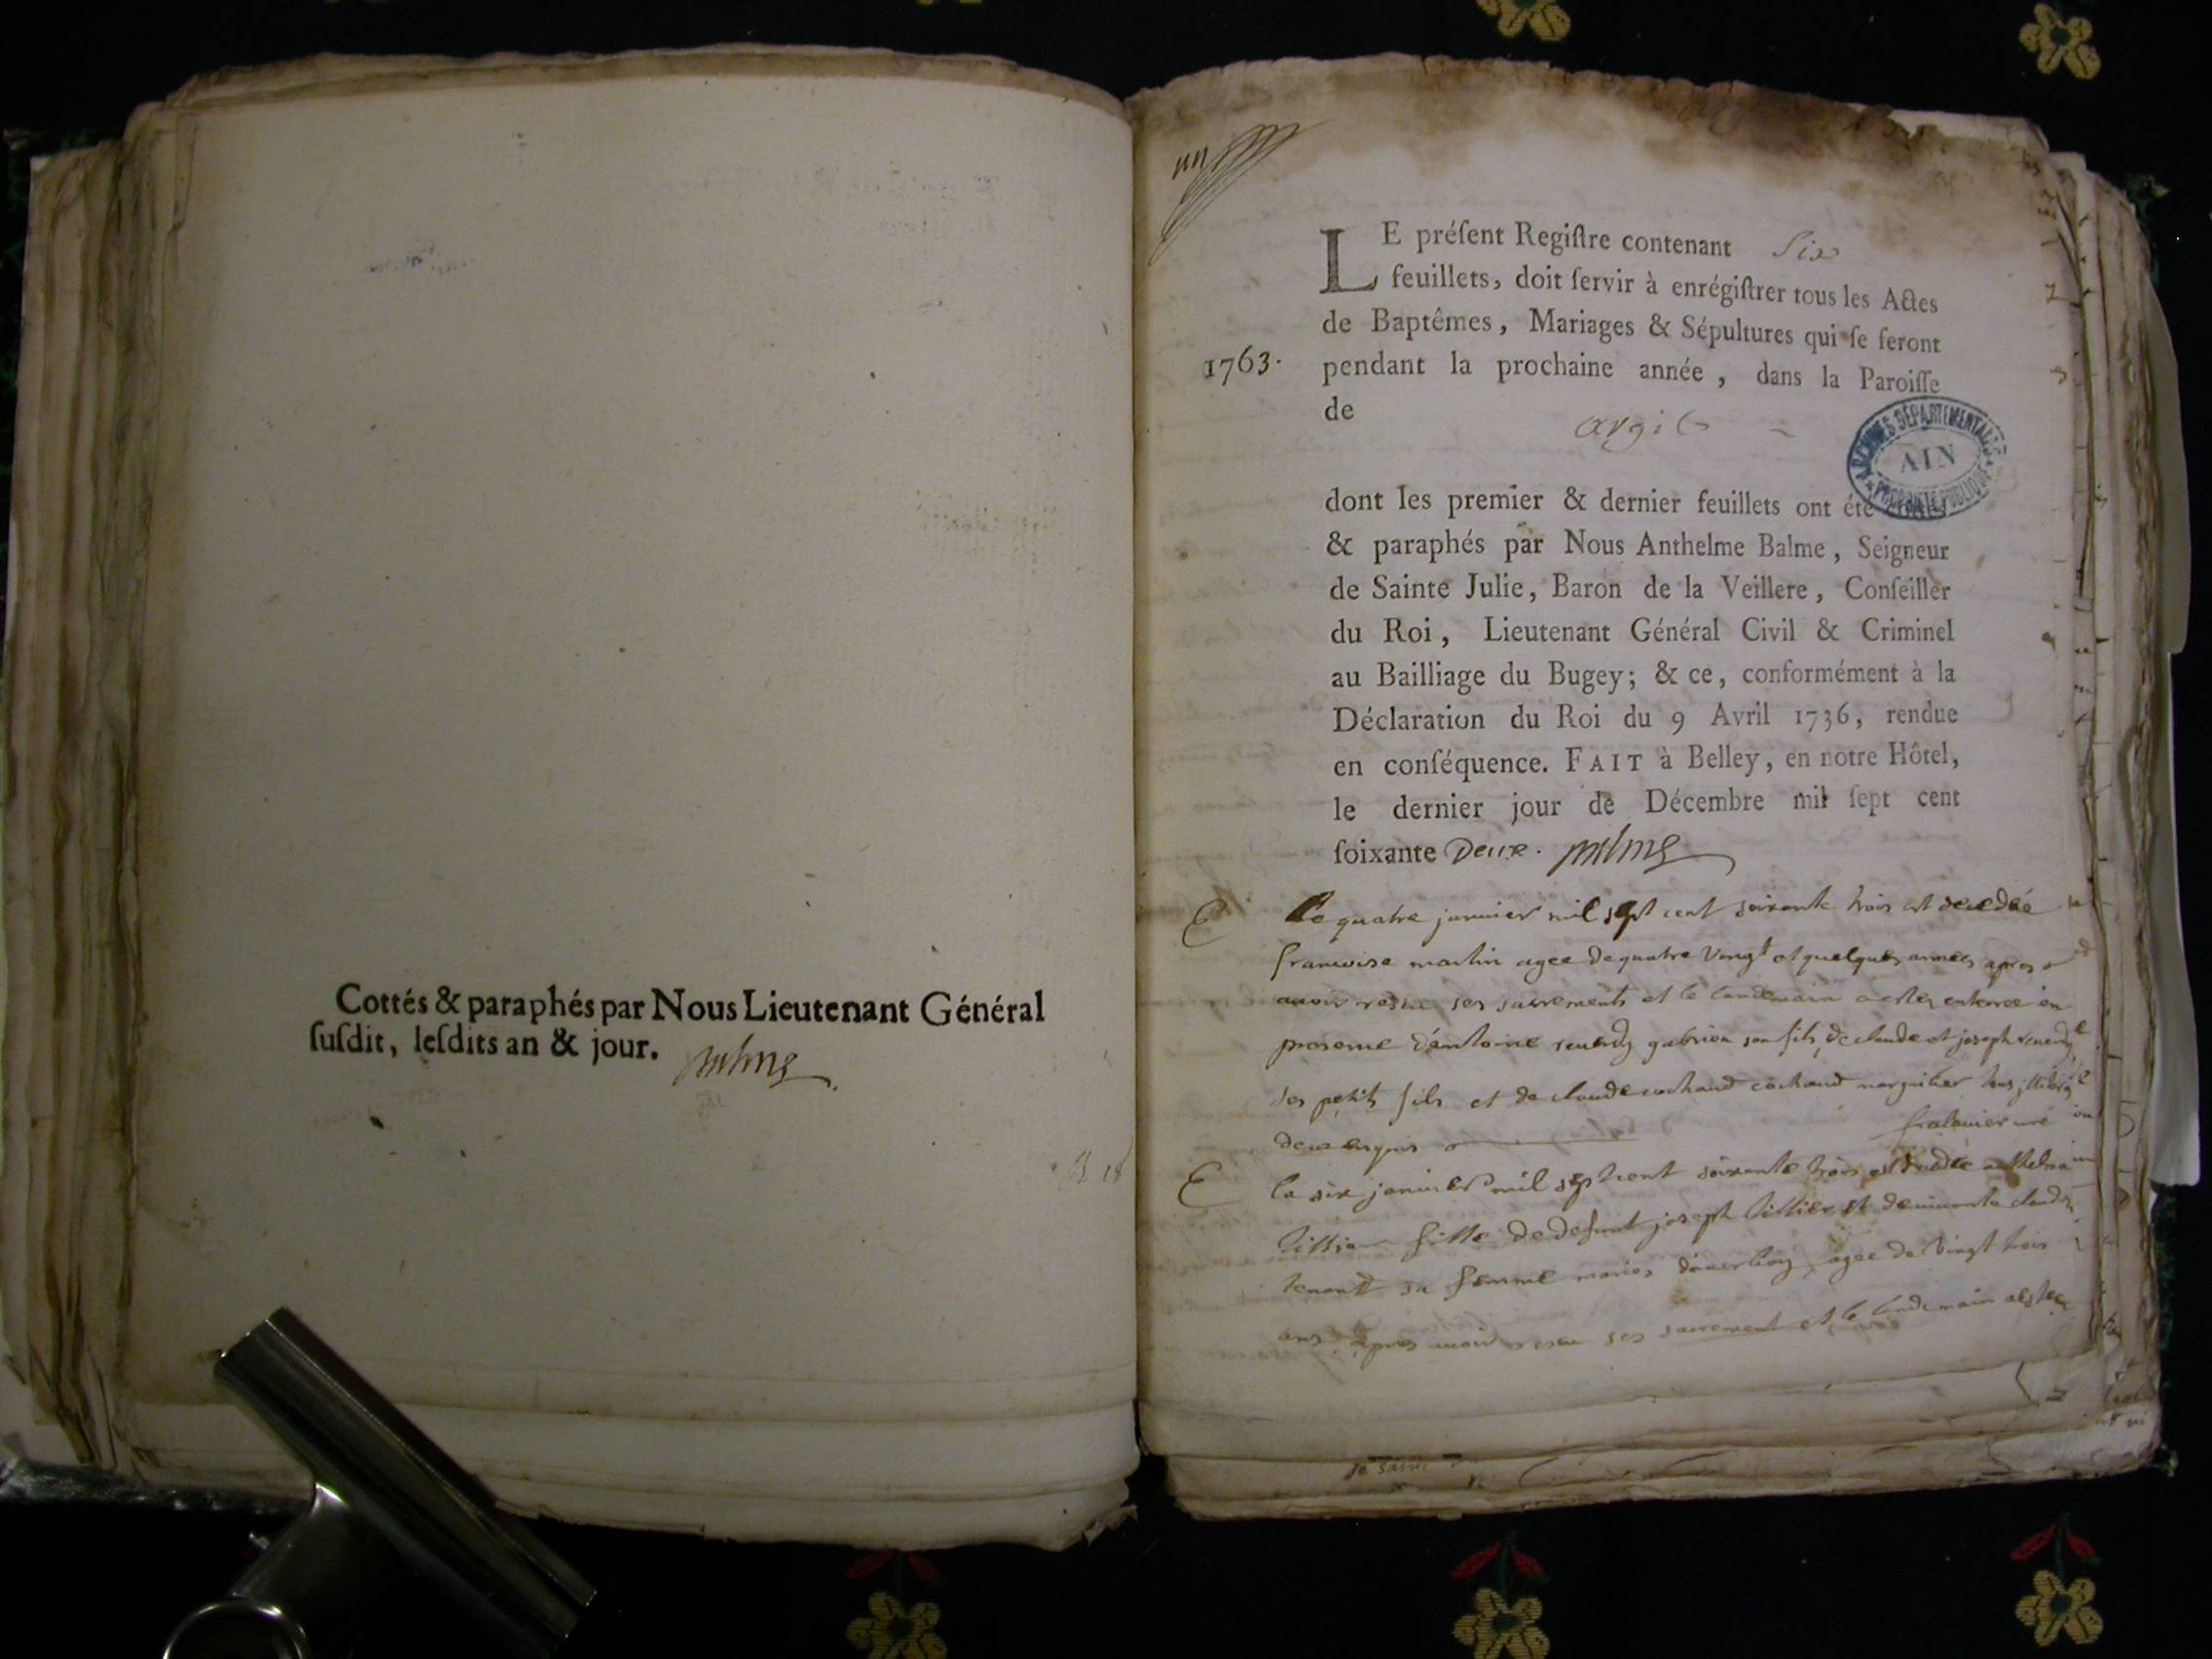 Cottés & paraphés par Nous Lieutenant Général
ſuſdit, leſdits an & jour.
un
LE préſent Regiſtre contenant Six
feuillets, doit ſervir à enrégiſtrer tous les Actes
de Baptêmes, Mariages & Sépultures qui ſe feront
1763.
pendant la prochaine année, dans la Paroiſſe
de
argis
ARCHIVES DÉPARTEMENTALES
AIN
dont les premier & dernier feuillets ont été
& paraphés par Nous Anthelme Balme, Seigneur
de Sainte Julie, Baron de la Veillere, Conſeiller
du Roi, Lieutenant Général Civil & Criminel
au Bailliage du Bugey; & ce, conformément à la
Déclaration du Roi du 9 Avril 1736, rendue
en conſéquence. FAIT à Belley, en notre Hôtel,
le dernier jour de Décembre mil ſept cent
ſoixante Deux. Balme
Le quatre janvier mil sept cent soixante trois est decedée
francoise martin agee de quatre vingt et quelques annees apres
avoir resu ses sacrements et le landemain a estez enterree en
presence d'antoine gabriea son fils, de claude et joseph
ses petits fils et de claude cochand cochand marguilier tous
deux enquis
le six janvier mil sept cent soixante trois est
fille de defunt joseph tissier et de vivante claud
tenant sa femme agee de vingt trois
ans, apres avoir resu ses sacrement et le landemain